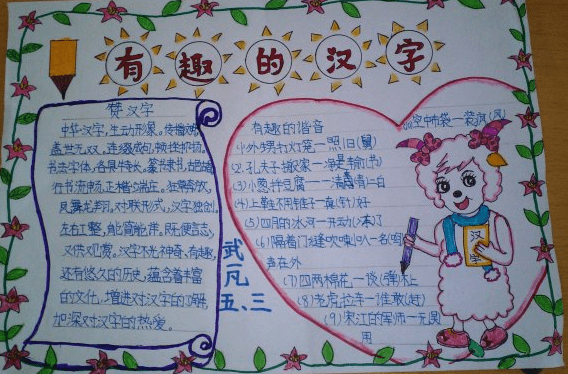 有趣的汉字
赞汉字
中华汉字,生动形象。传播文明,
盖世无双,连缀成句,顿挫抑扬。
书法字体,各具特长,篆隶古朴,
行书流畅,正楷端庄。狂草奔放,
凤舞龙翔。对联形式,汉字独创。
左右工整,能简能详。既便言志,
又供观赏。汉字不光神奇、有趣,
还有悠久的历史,蕴含着丰富
的文化,增进对汉字的了解,
加深对汉字的热爱。
武一凡
五、三
有趣的谐音
(1)外甥打灯笼一照旧(舅)
(2)孔夫子搬家一净是输(书)
(3)小葱拌豆腐一一清青二白
(4)上鞋不用锥子一真(针)好
(5)四月的冰河一开动(冻)了
(6)隔着门缝吹喇叭一名(鸣)
声在外
(7)四两棉花一谈(弹)不上
(8)老虎拉车一谁敢(赶)
(9)宋江的军师一无(吴)
用
(10)空中布袋一装疯(风)
汉字